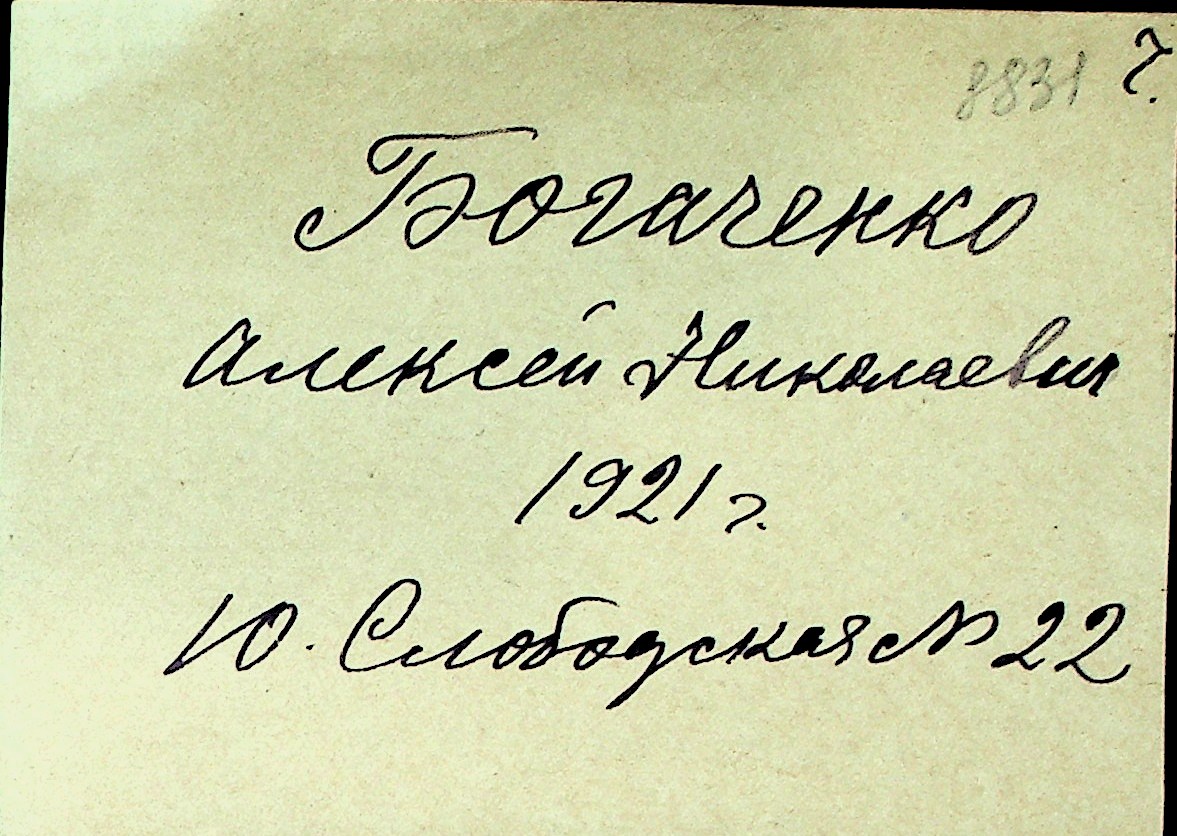 8831 ?
Богаченко
Алексей Николаевич
1921 г.
Ю. Слободская № 22